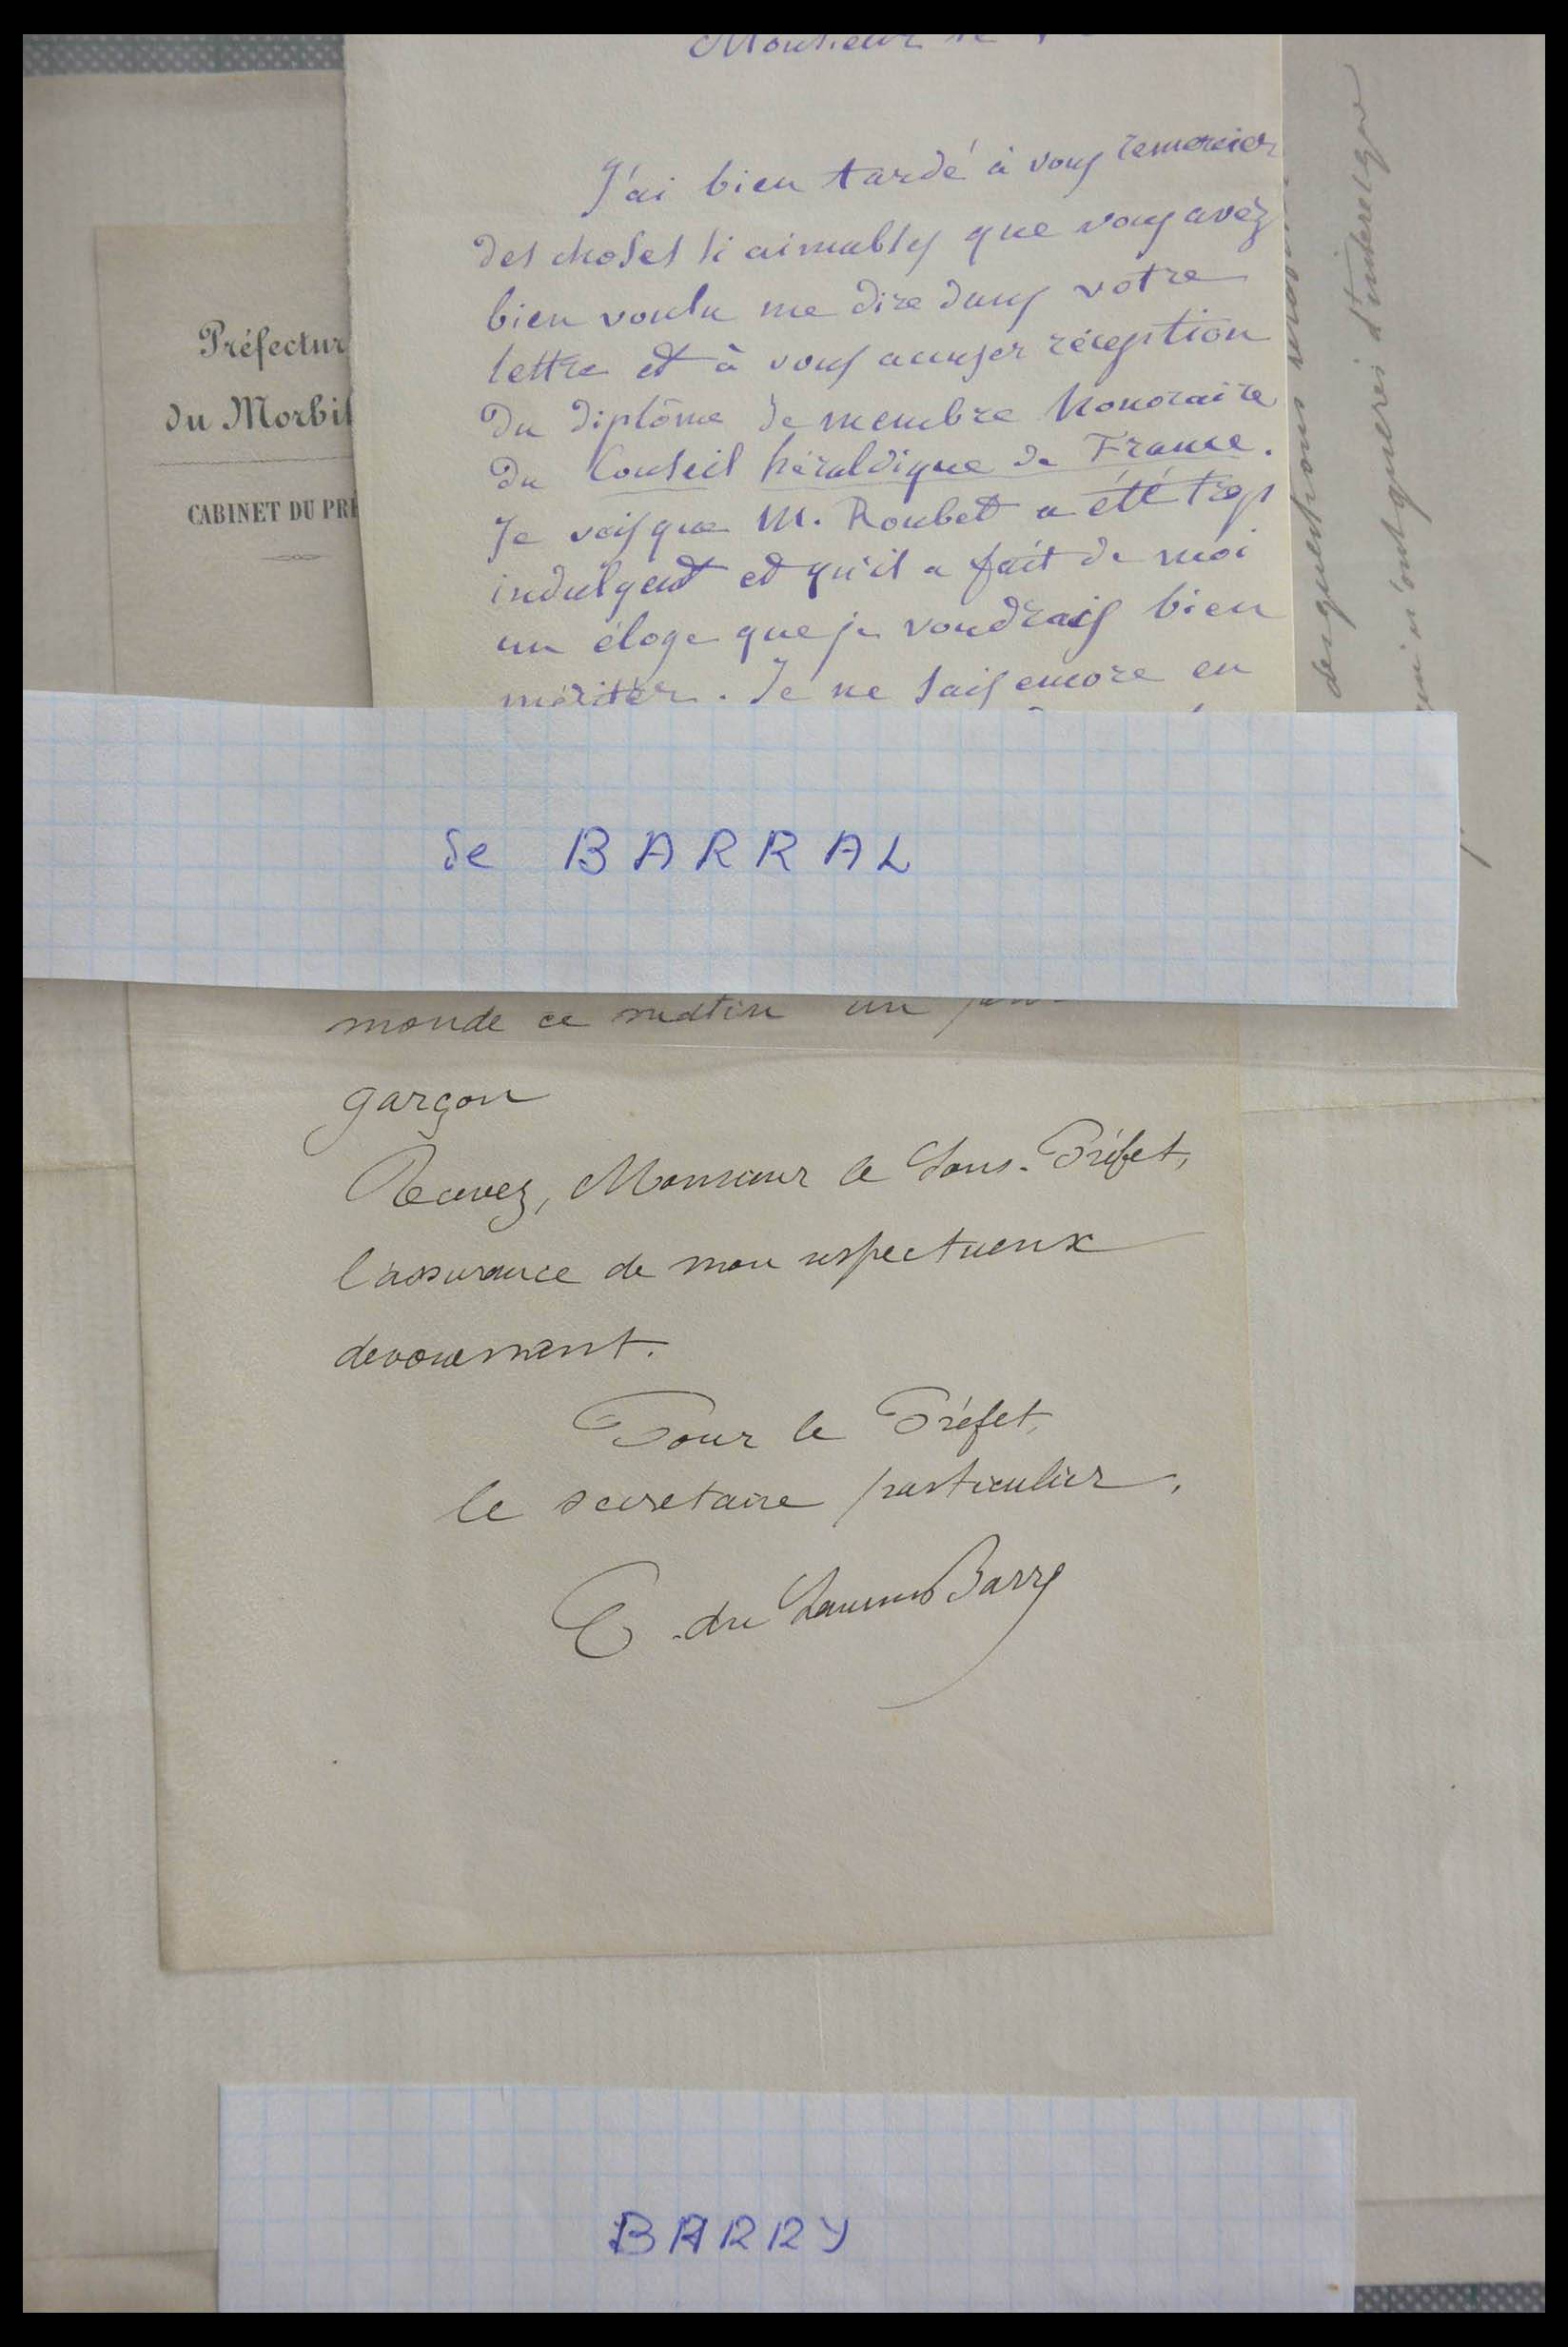 Préfectur
du Morbi
CABINET DU PRÉ
Monsieur le
J'ai bien tardé à vous remercier
des choses si aimables que vous avez
bien voulu me dire dans votre
lettre et à vous accuser réception
du diplôme de membre honoraire
du Conseil héraldique de France.
Je vois que M. Roubet a été trop
indulgent et qu'il a fait de moi
un éloge que je voudrais bien
mériter. Je ne sais encore en
des questions
qui n'ont guères d'intérêt que
de BARRAL
monde ce matin un
garçon
Recevez, Monsieur le Sous-Préfet,
l'assurance de mon respectueux
devouement.
Pour le Préfet,
le secretaire particulier,
du Barry
BARRY